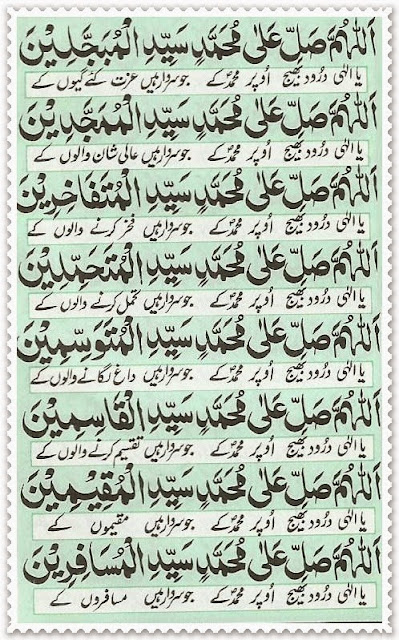 اَللّٰهُمَّ صَلِّ عَلٰى مُحَمَّدٍ سَيِّدِ الْمُبَجَّلِيْنَ
یا الٰہی درُود بھیج اُوپر محمدؐ کے جو سردار ہیں عزت کئے گیوں کے
اَللّٰهُمَّ صَلِّ عَلٰى مُحَمَّدٍ سَيِّدِ الْمُمَجَّدِيْنَ
یا الٰہی درُود بھیج اُوپر محمدؐ کے جو سردار ہیں عالی شان والوں کے
اَللّٰهُمَّ صَلِّ عَلٰى مُحَمَّدٍ سَيِّدِ الْمُتَفَاخِرِيْنَ
یا الٰہی درُود بھیج اُوپر محمدؐ کے جو سردار ہیں فخر کرنے والوں کے
اَللّٰهُمَّ صَلِّ عَلٰى مُحَمَّدٍ سَيِّدِ الْمُتَحَمِّلِيْنَ
یا الٰہی درُود بھیج اُوپر محمدؐ کے جو سردار ہیں تحمل کرنے والوں کے
اَللّٰهُمَّ صَلِّ عَلٰى مُحَمَّدٍ سَيِّدِ الْمُتَوَسِّمِيْنَ
یا الٰہی درُود بھیج اُوپر محمدؐ کے جو سردار ہیں داغ لگانے والوں کے
اَللّٰهُمَّ صَلِّ عَلٰى مُحَمَّدٍ سَيِّدِ الْقَاسِمِيْنَ
یا الٰہی درُود بھیج اُوپر محمدؐ کے جو سردار ہیں تقسیم کرنے والوں کے
اَللّٰهُمَّ صَلِّ عَلٰى مُحَمَّدٍ سَيِّدِ الْمُقِيْمِيْنَ
یا الٰہی درُود بھیج اُوپر محمدؐ کے جو سردار ہیں مقیموں کے
اَللّٰهُمَّ صَلِّ عَلٰى مُحَمَّدٍ سَيِّدِ الْمُسَافِرِيْنَ
یا الٰہی درُود بھیج اُوپر محمدؐ کے جو سردار ہیں مسافروں کے